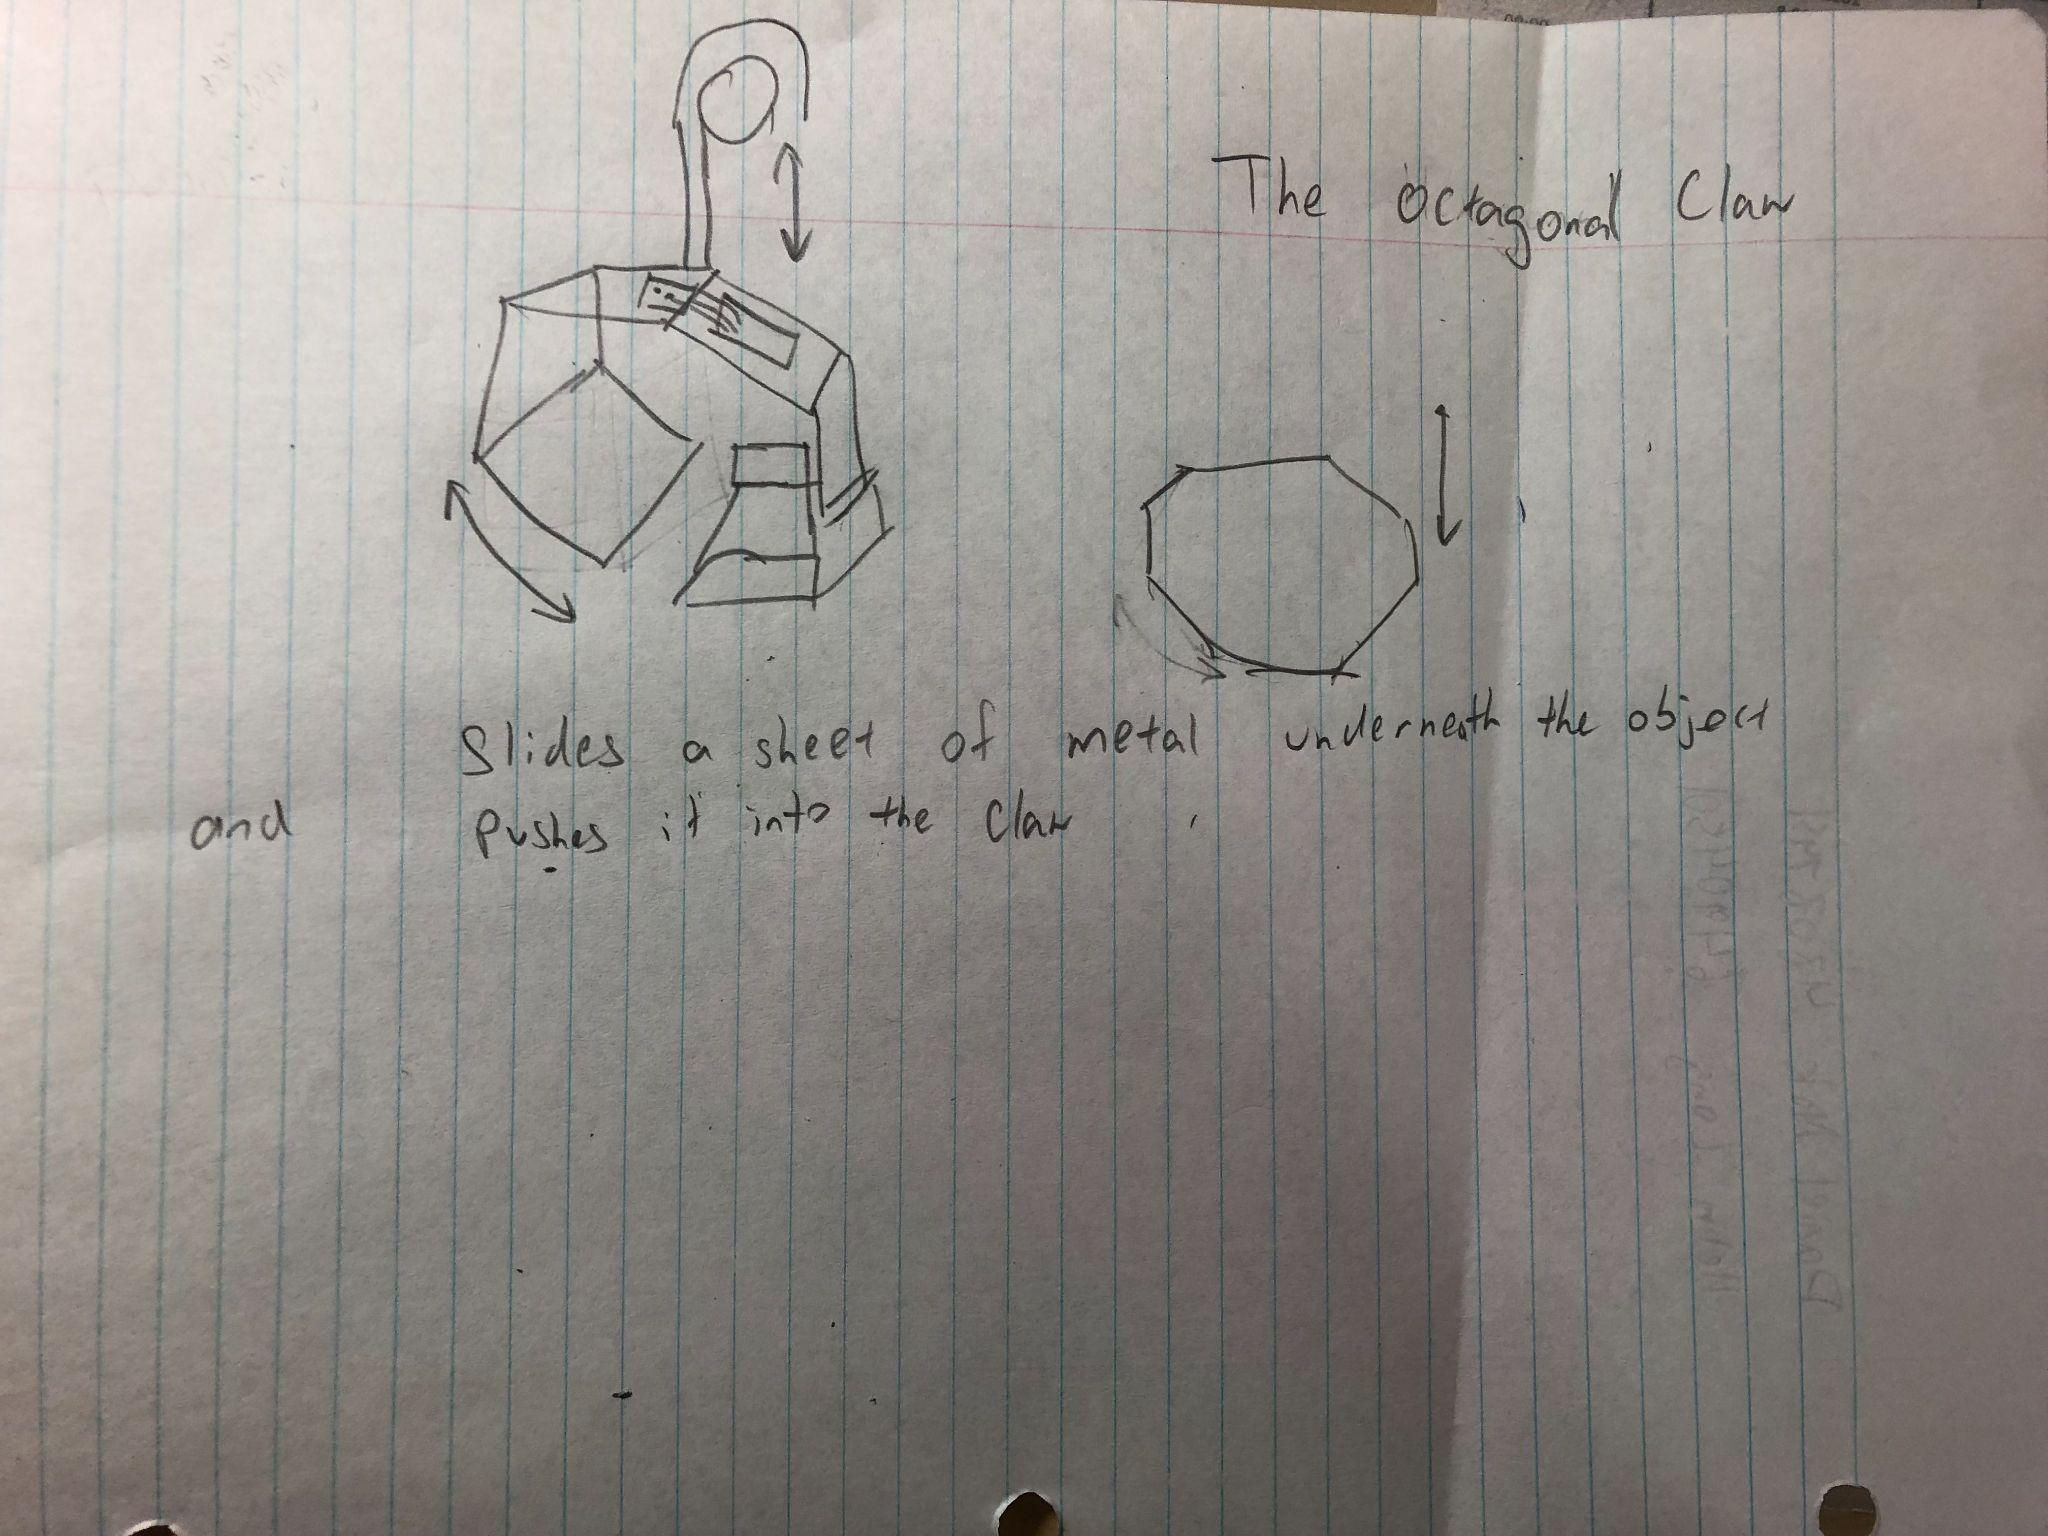 The octagonal Claw
Slides a sheet of metal underneath the object
and pushes it into the claw